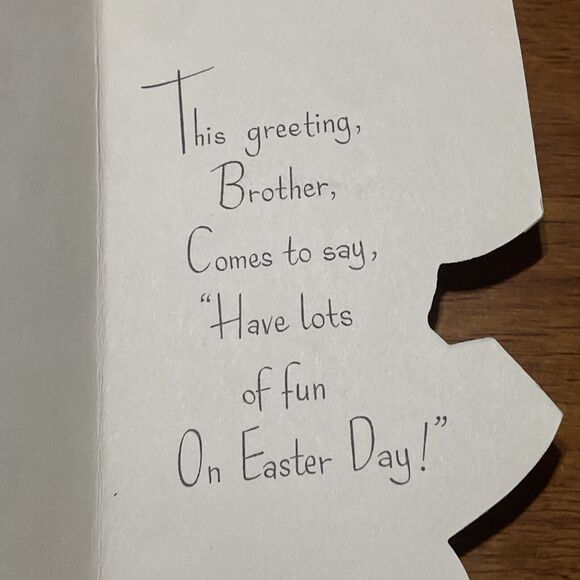 This greeting,
Brother,
Comes to say,
“Have lots
of fun
On Easter Day!”